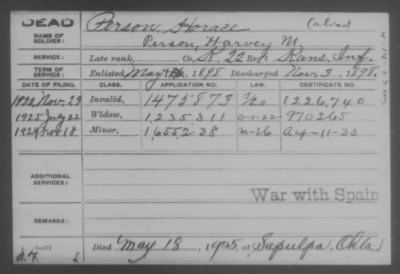 DEAD
NAME OF SOLDIER: Person, Horace (alias)
Person, Harvey M.
SERVICE: Late rank, Co. K, 22 Reg't Kans. Inf.
TERM OF SERVICE: Enlisted May 1898 Discharged Nov. 3, 1898.
DATE OF FILING. CLASS. APPLICATION NO. LAW. CERTIFICATE NO.
Nov. 29 Invalid, 1475873 1226,740
1925 July 22 Widow, 1,235,311 970265
Nov 18 Minor, 1,655,238 A4-11-30
ADDITIONAL SERVICES:
War with Spain
REMARKS:
Died May 18, 1925, at Sapulpa, Okla